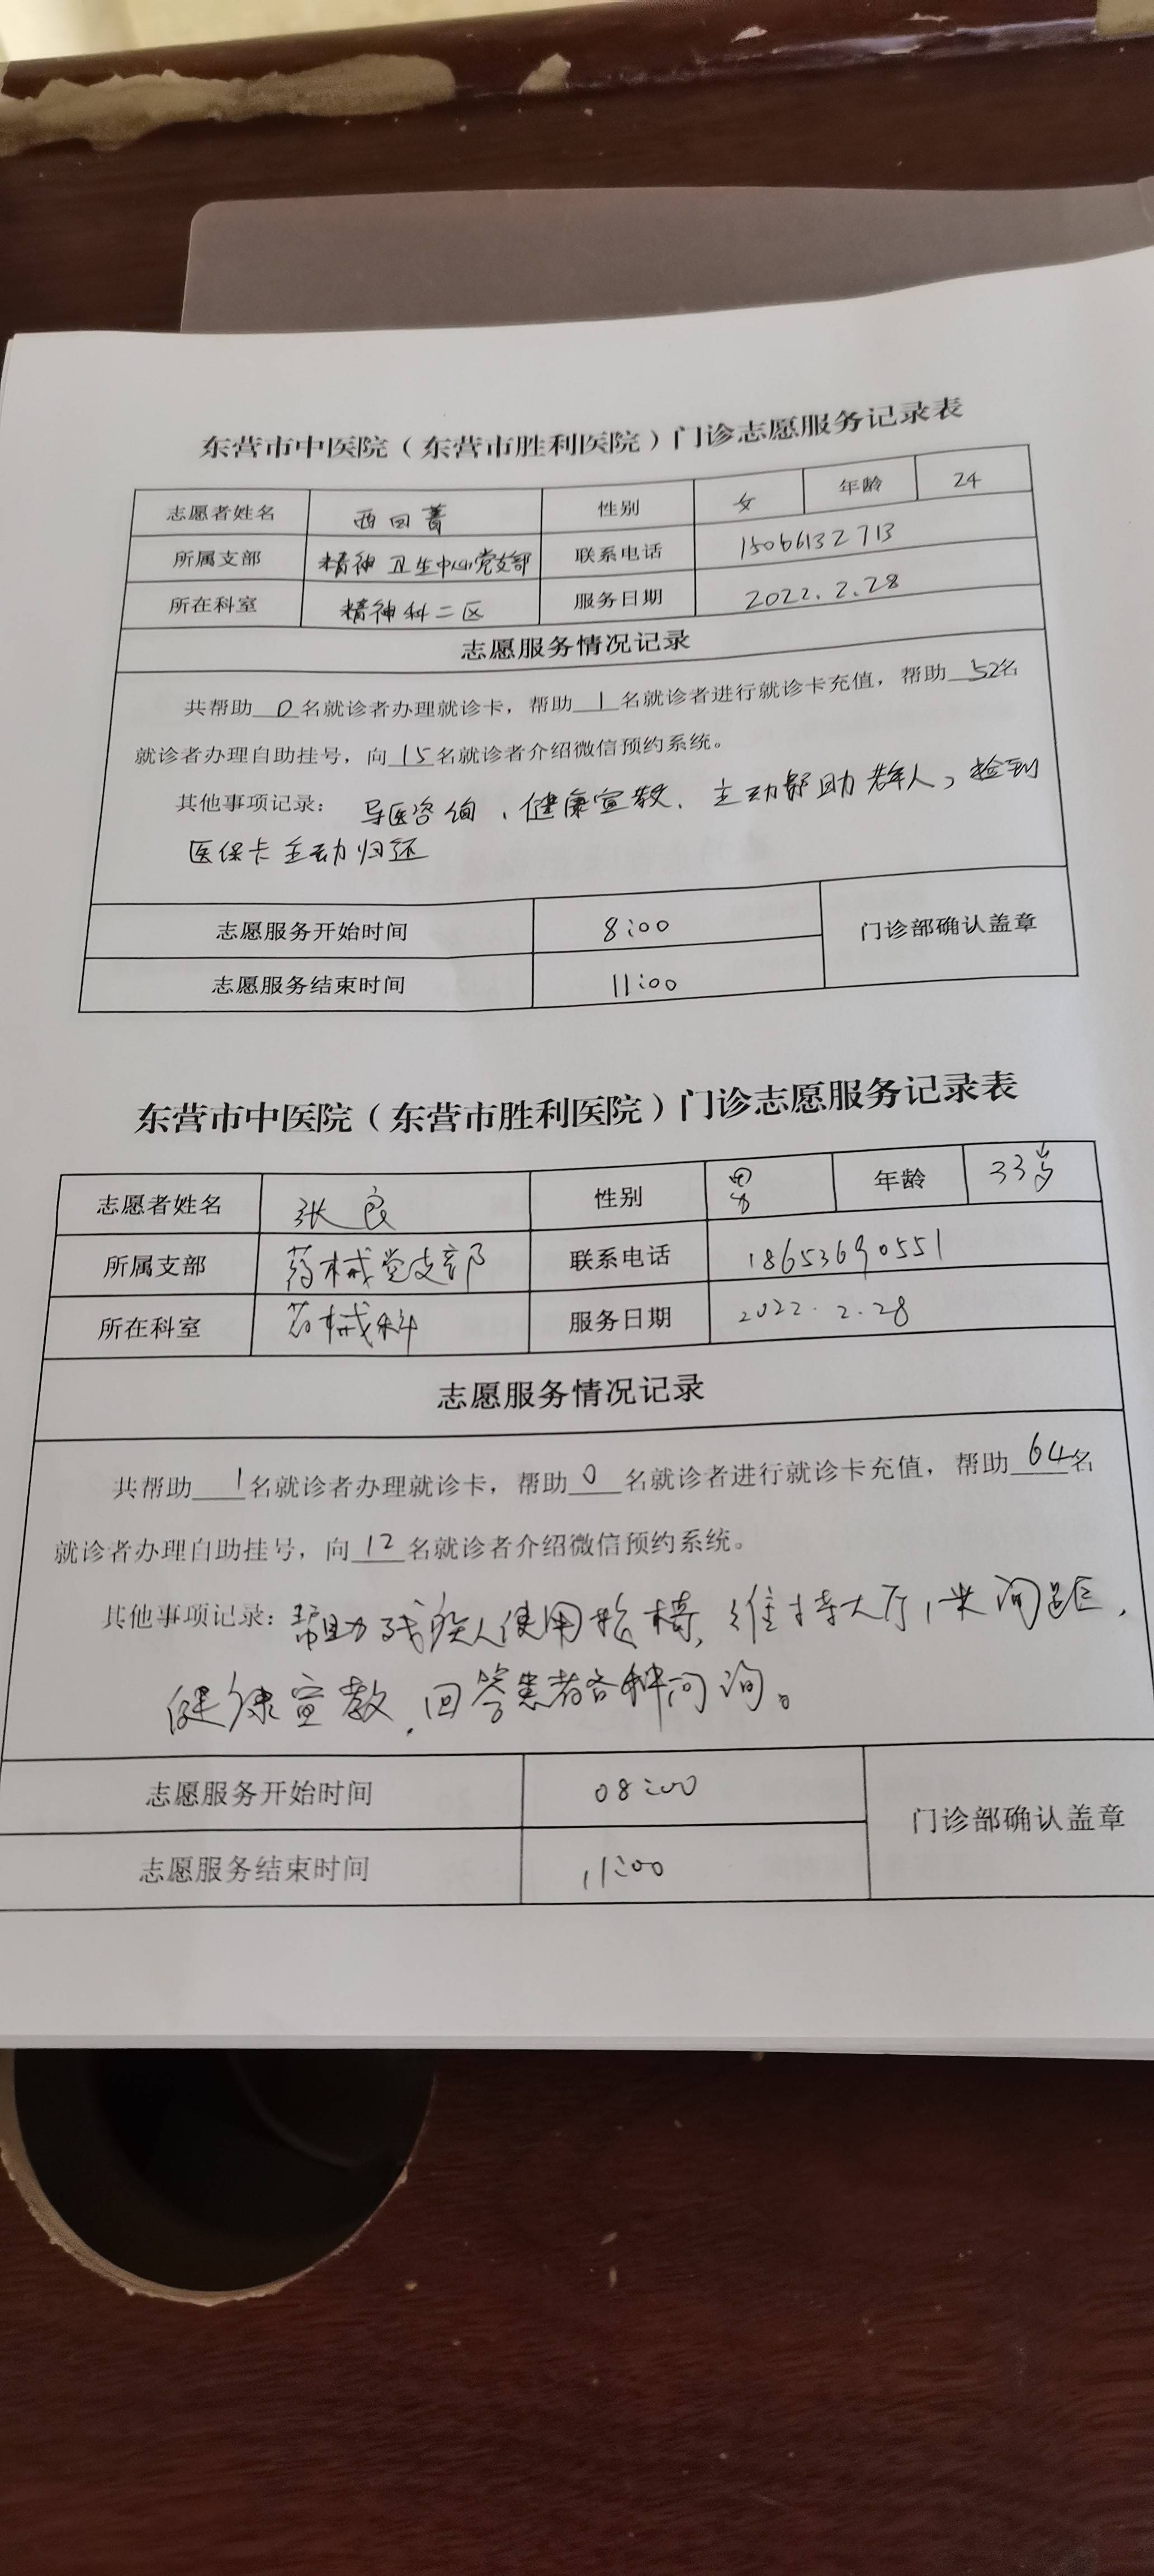 东营市中医院（东营市胜利医院）门诊志愿服务记录表
志愿者姓名 西曰菁 性别 女 年龄 24
所属支部 精神卫生中心党支部 联系电话 15066132713
所在科室 精神科二区 服务日期 2022.2.28
志愿服务情况记录
共帮助0名就诊者办理就诊卡，帮助1名就诊者进行就诊卡充值，帮助52名
就诊者办理自助挂号，向15名就诊者介绍微信预约系统。
其他事项记录：导医咨询、健康宣教、主动帮助老年人，捡到
医保卡主动归还
志愿服务开始时间 8:00 门诊部确认盖章
志愿服务结束时间 11:00
东营市中医院（东营市胜利医院）门诊志愿服务记录表
志愿者姓名 张良 性别 男 年龄 33岁
所属支部 药械党支部 联系电话 18653690551
所在科室 药械科 服务日期 2022.2.28
志愿服务情况记录
共帮助1名就诊者办理就诊卡，帮助0名就诊者进行就诊卡充值，帮助64名
就诊者办理自助挂号，向12名就诊者介绍微信预约系统。
其他事项记录：帮助残疾人使用轮椅，维持大厅1米间距，
健康宣教，回答患者各种问询。
志愿服务开始时间 08:00 门诊部确认盖章
志愿服务结束时间 11:00